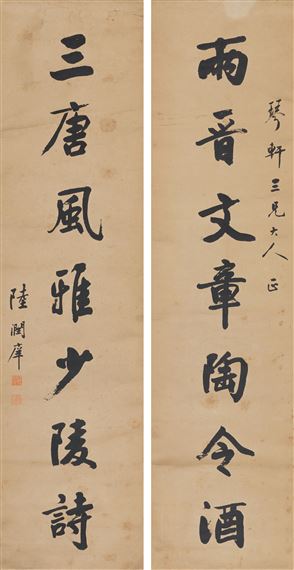 琴軒三兄大人正
兩晋文章陶令酒
三唐風雅少陵詩
陸潤庠